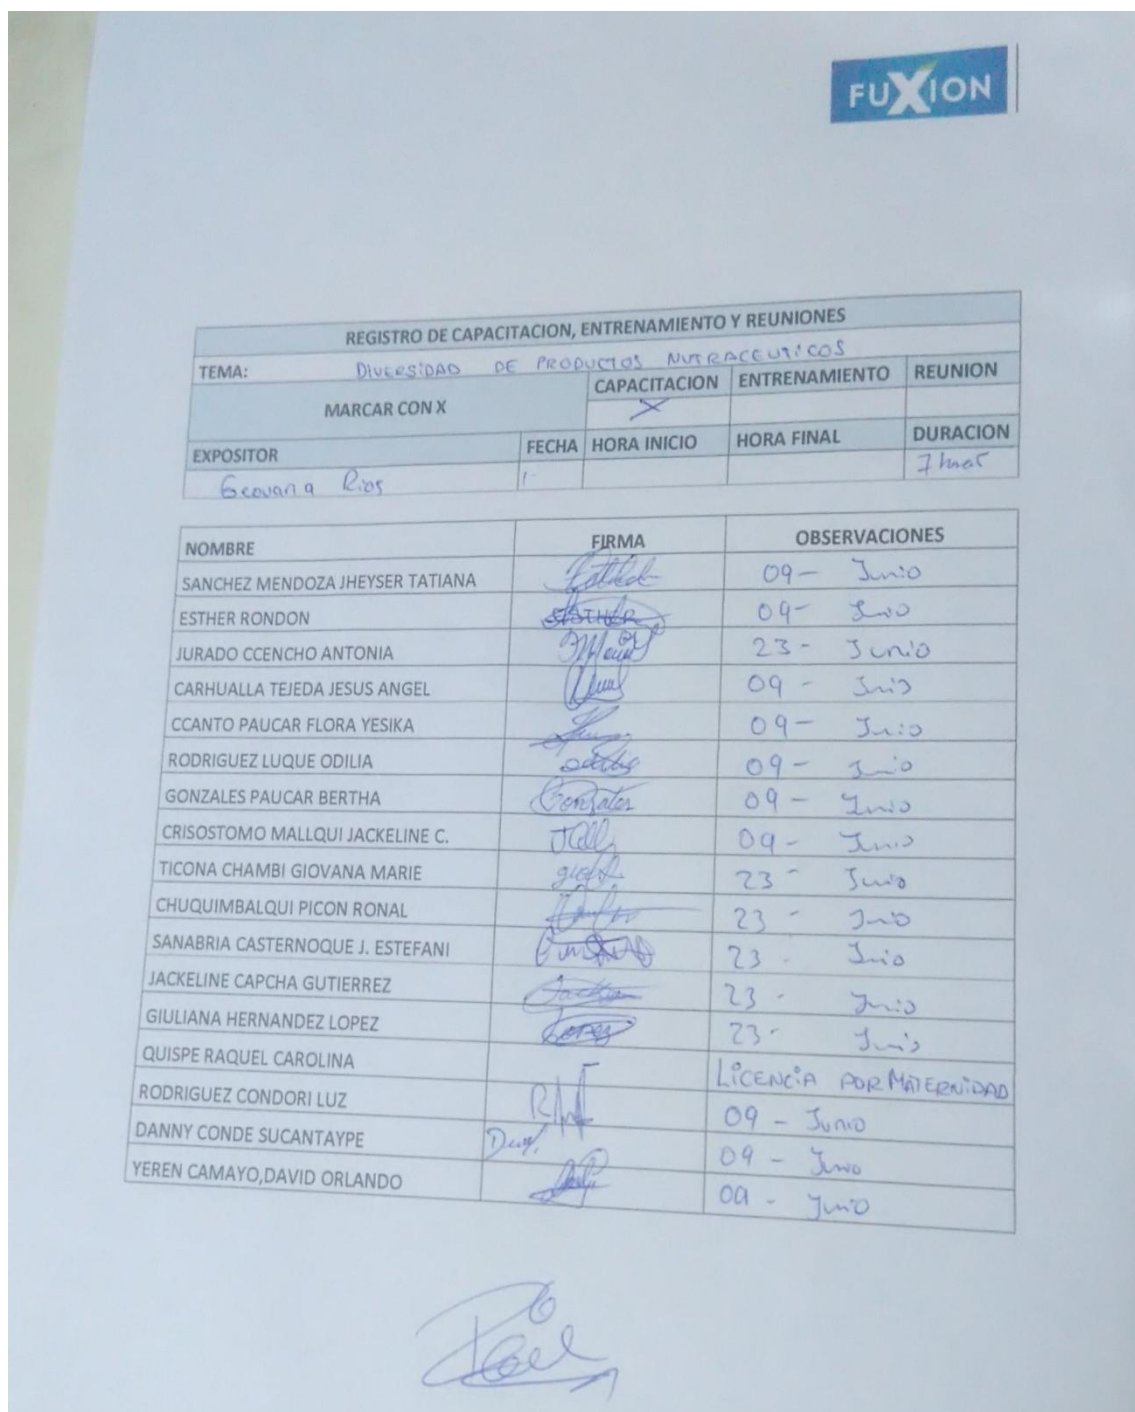 FUXION
REGISTRO DE CAPACITACION, ENTRENAMIENTO Y REUNIONES
TEMA: DIVERSIDAD DE PRODUCTOS NUTRACEUTICOS
MARCAR CON X CAPACITACION ENTRENAMIENTO REUNION
X
EXPOSITOR FECHA HORA INICIO HORA FINAL DURACION
Geovana Rios 7
NOMBRE FIRMA OBSERVACIONES
SANCHEZ MENDOZA JHEYSER TATIANA 09 - Junio
ESTHER RONDON ESTHER 09 - Junio
JURADO CCENCHO ANTONIA 23 - Junio
CARHUALLA TEJEDA JESUS ANGEL 09 - Junio
CCANTO PAUCAR FLORA YESIKA 09 - Junio
RODRIGUEZ LUQUE ODILIA 09 - Junio
GONZALES PAUCAR BERTHA Gonzales 09 - Junio
CRISOSTOMO MALLQUI JACKELINE C. 09 - Junio
TICONA CHAMBI GIOVANA MARIE 23 - Junio
CHUQUIMBALQUI PICON RONAL 23 - Junio
SANABRIA CASTERNOQUE J. ESTEFANI 23 - Junio
JACKELINE CAPCHA GUTIERREZ 23 - Junio
GIULIANA HERNANDEZ LOPEZ Lopez 23 - Junio
QUISPE RAQUEL CAROLINA LICENCIA POR MATERNIDAD
RODRIGUEZ CONDORI LUZ 09 - Junio
DANNY CONDE SUCANTAYPE 09 - Junio
YEREN CAMAYO,DAVID ORLANDO 09 - Junio